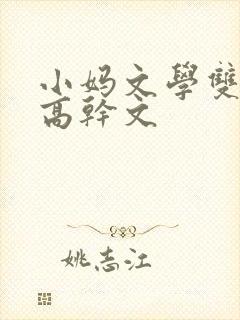 小妈文學雙
高幹文
姚志江